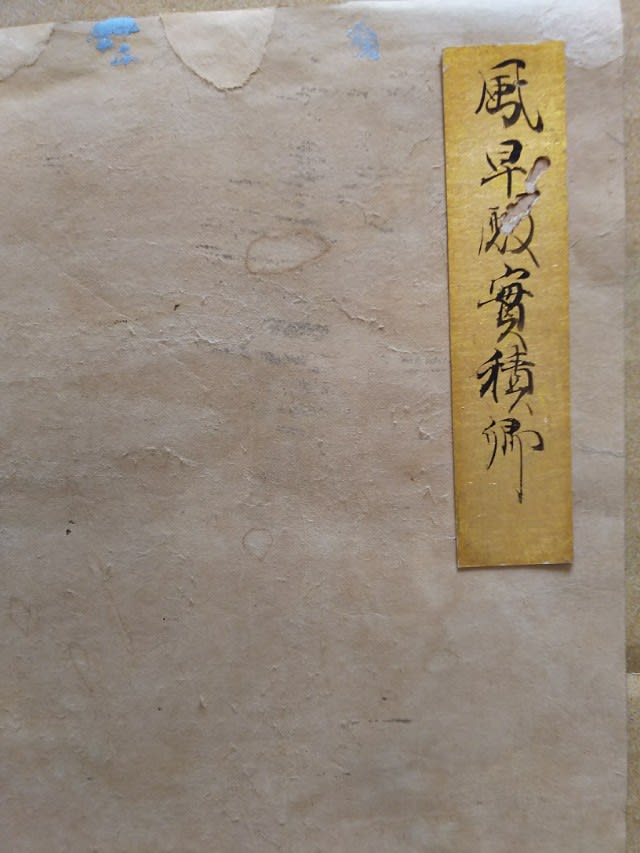 風早殿實積卿